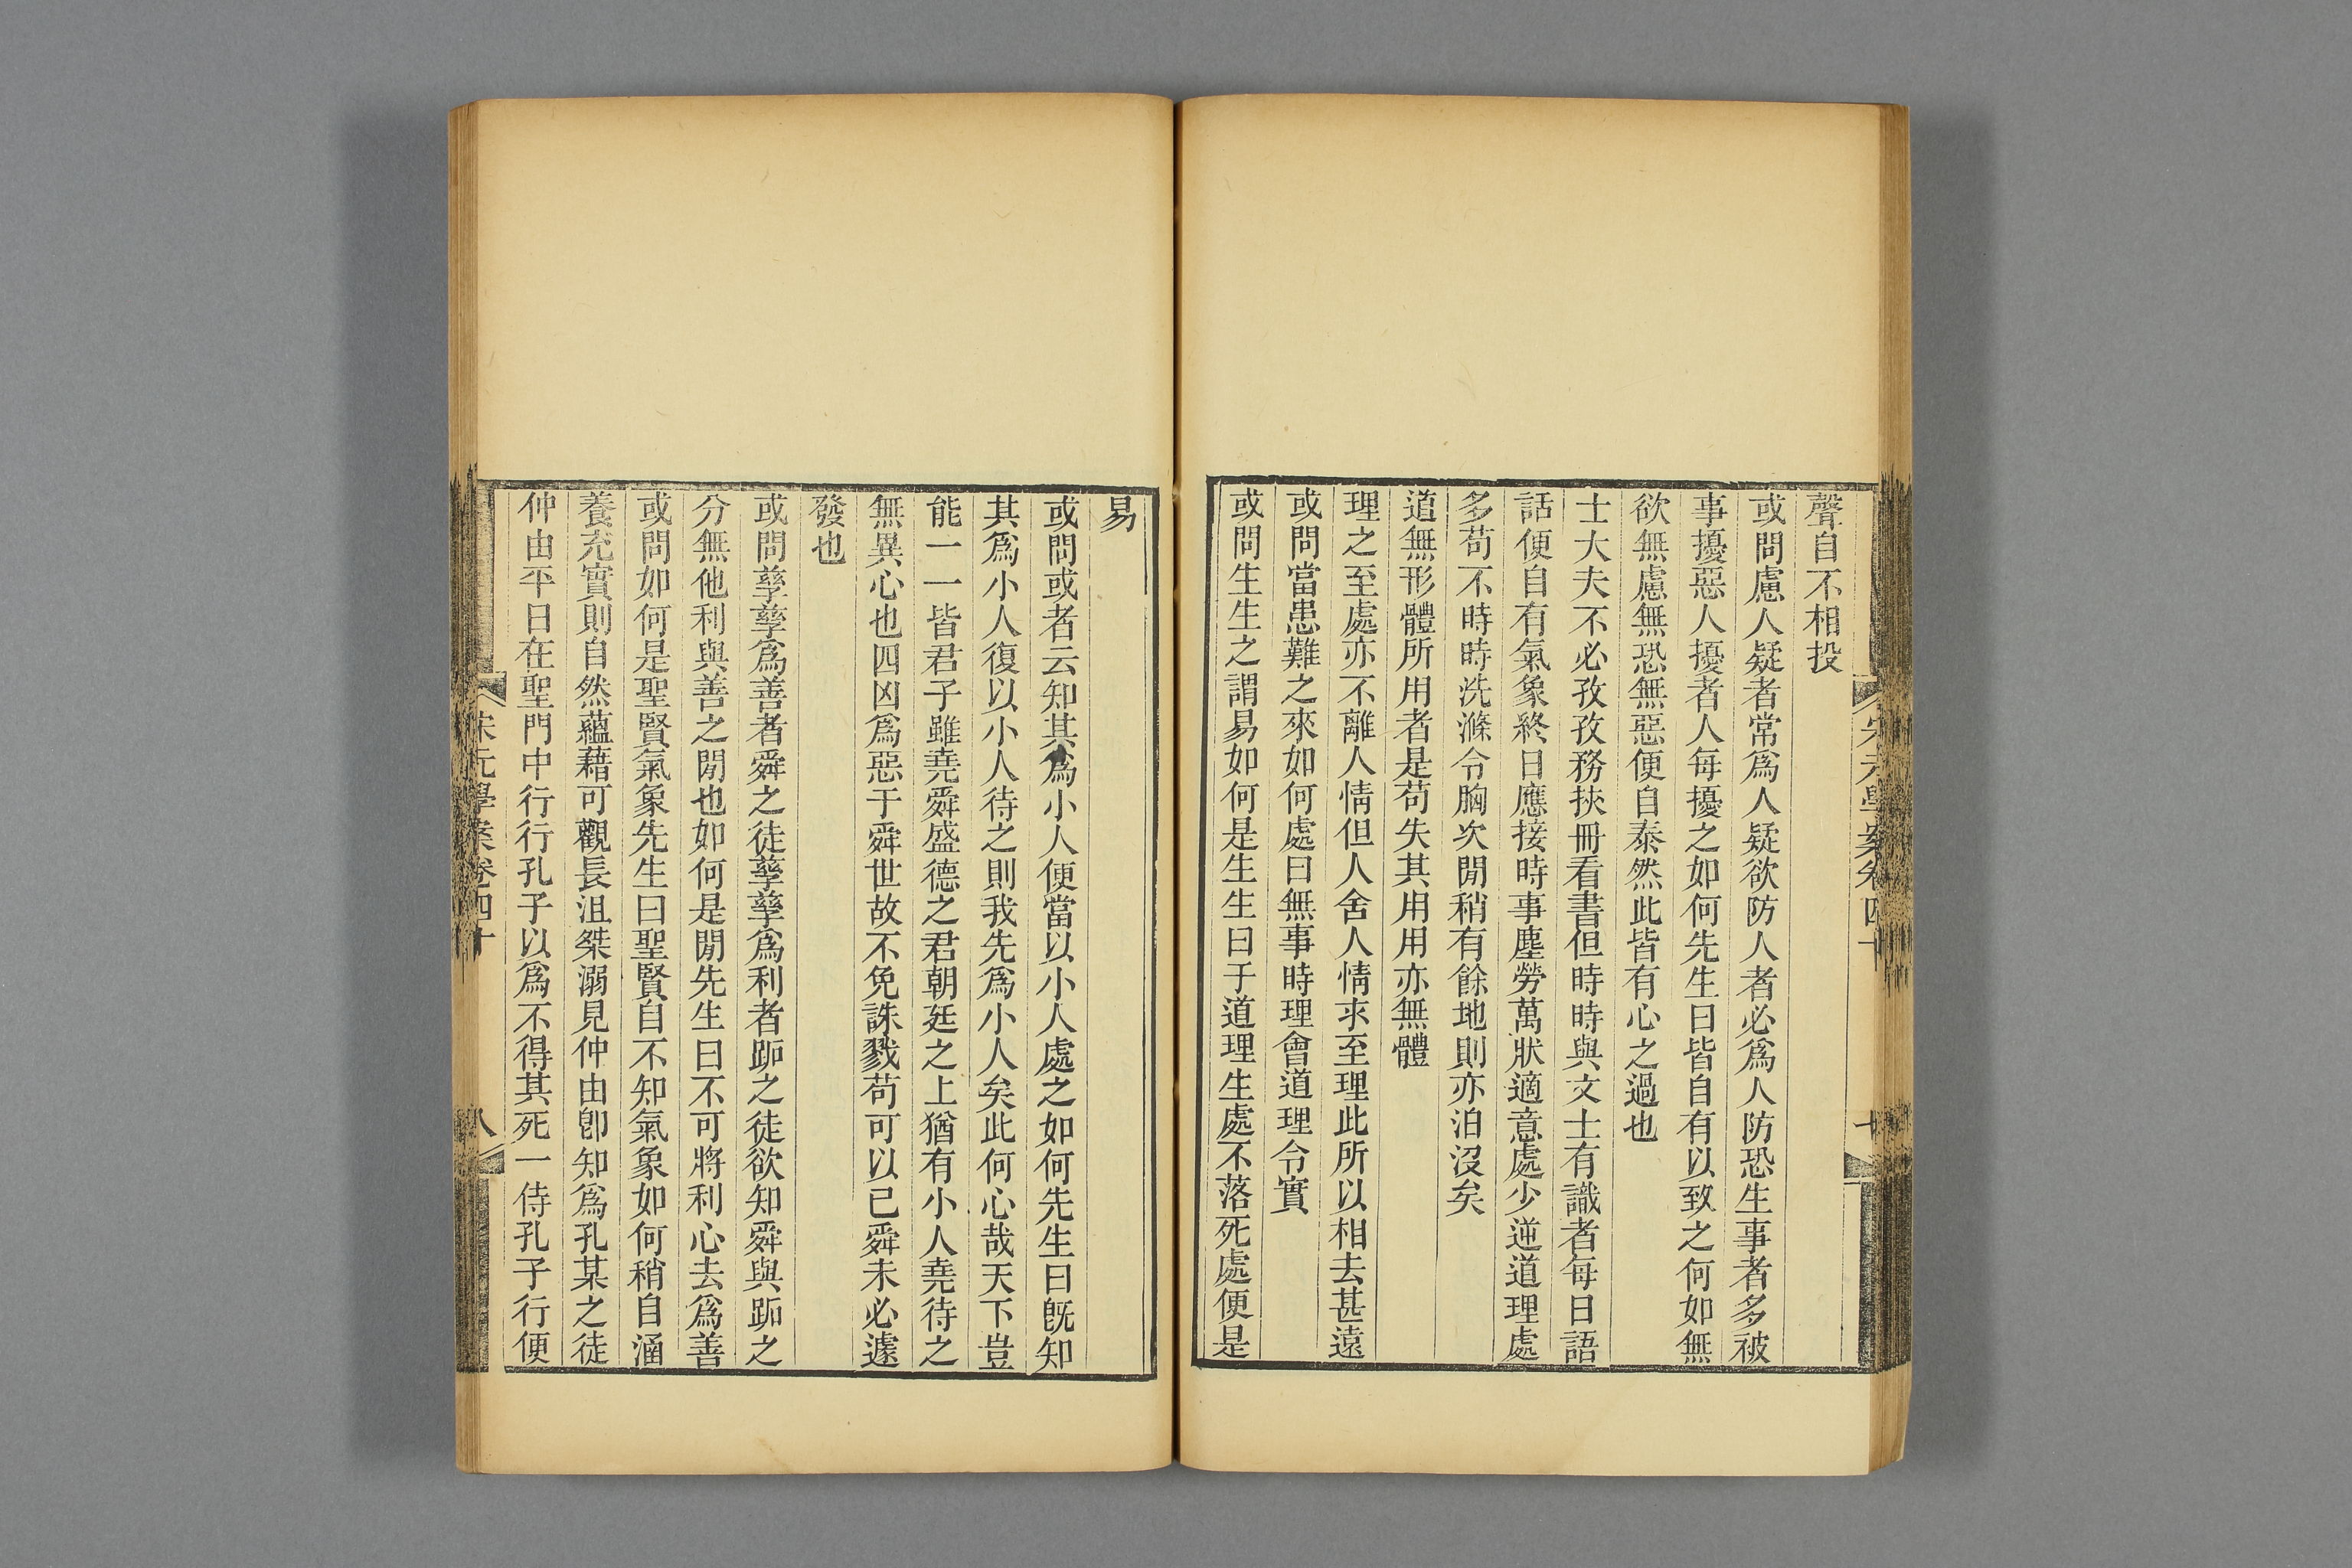 聲自不相投
或問慮人疑者常爲人疑欲防人者必爲人防恐生事者多被
事擾惡人擾者人每擾之如何先生曰皆自有以致之何如無
欲無慮無恐無惡便自泰然此皆有心之過也
士大夫不必孜孜務挾冊看書但時時與文士有識者每日語
話便自有氣象終日應接時事塵勞萬狀適意處少逆道理處
多苟不時時洗滌令胸次閒稍有餘地則亦汩沒矣
道無形體所用者是苟失其用用亦無體
理之至處亦不離人情但人舍人情求至理此所以相去甚遠
或問當患難之來如何處曰無事時理會道理令實
或問生生之謂易如何是生生曰于道理生處不落死處便是
易
或問或者云知其爲小人便當以小人處之如何先生曰旣知
其爲小人復以小人待之則我先爲小人矣此何心哉天下豈
能一一皆君子雖堯舜盛德之君朝廷之上猶有小人堯待之
無異心也四凶爲惡于舜世故不免誅戮苟可以已舜未必遽
發也
或問孳孳爲善者舜之徒孳孳爲利者跖之徒欲知舜與跖之
分無他利與善之閒也如何是閒先生曰不可將利心去爲善
或問如何是聖賢氣象先生曰聖賢自不知氣象如何稍自涵
養充實則自然蘊藉可觀長沮桀溺見仲由卽知爲孔某之徒
仲由平日在聖門中行行孔子以爲不得其死一侍孔子行便
宋元學案卷四十
八